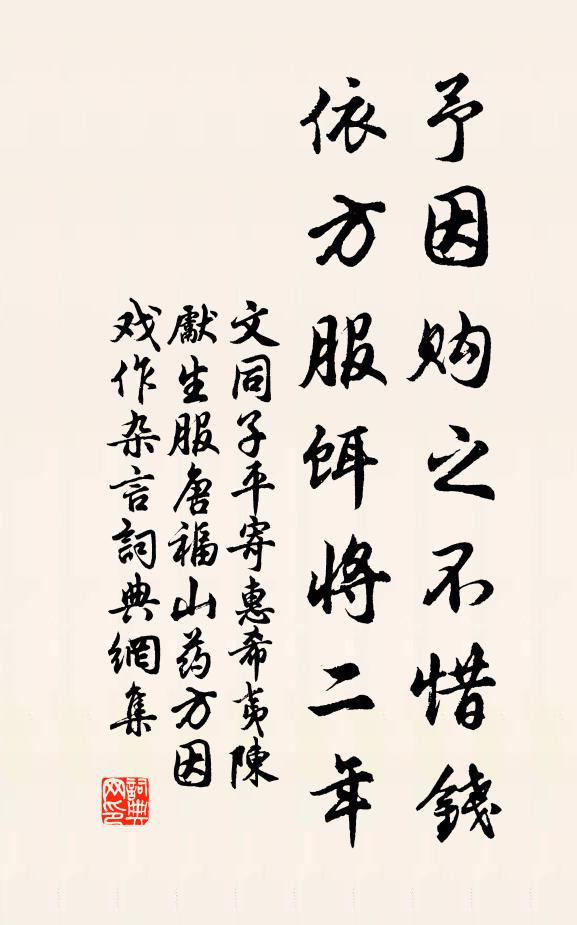 予因购之不惜錢
依方服饵将二年
文同子平寄惠希夷陳
獻生服唐福山药方因
戏作杂言詞典網集
詞典网印